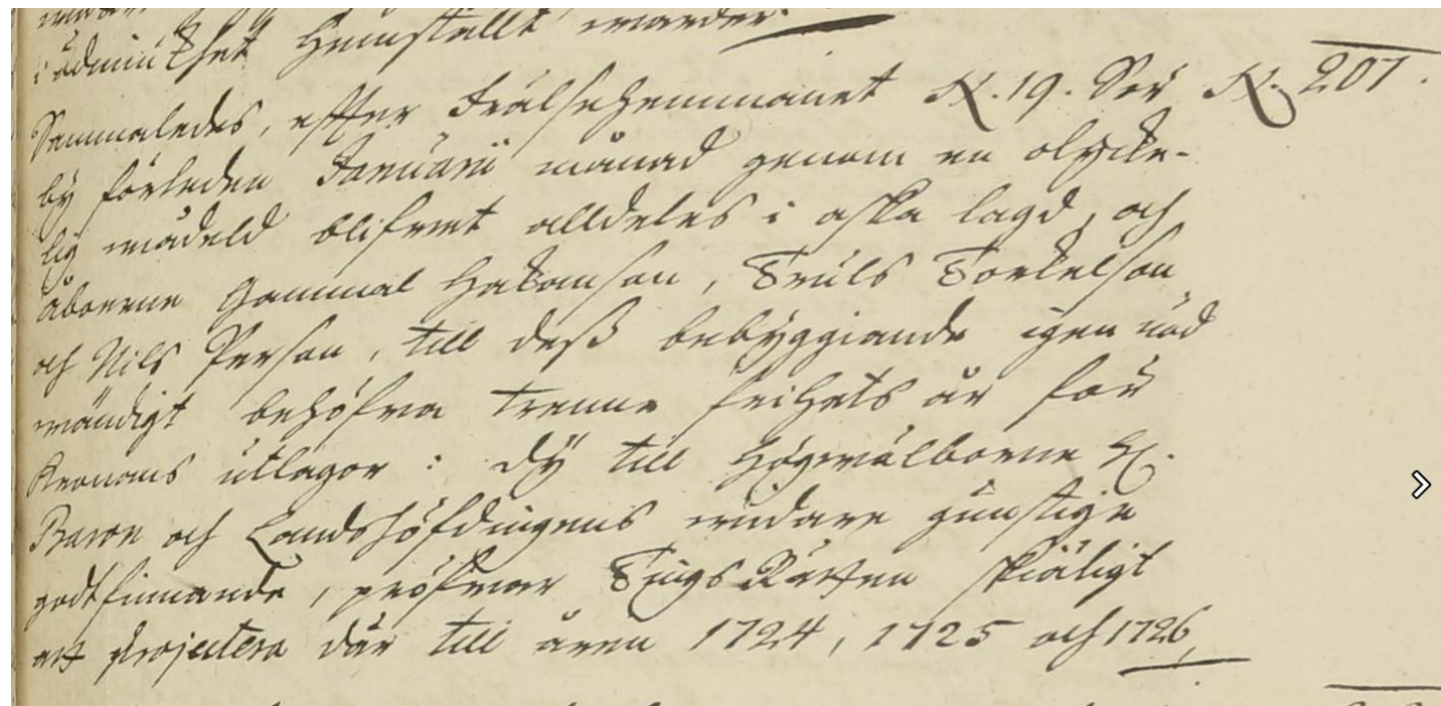 ödmiukhet hemstellt warder.
Sammaledes, efter Frälsehemmanet N. 19. Ser N. 207.
by förleden Januarii månad genom en olycke-
lig wådeld blifwet alldeles i aska lagd, och
åboerne Gammal Hakanson, Truls Torkelson
och Nils Person, till dess bebyggiande igen nöd
wändigt behöfwa trenne frihets år för
Kronans utlagor : dÿ till Högwälborne H.
Baron och Landshöfdingens widare gunstige
godtfinnande, pröfwar TingsRätten skiäligt
att projectera där till åren 1724, 1725 och 1726,